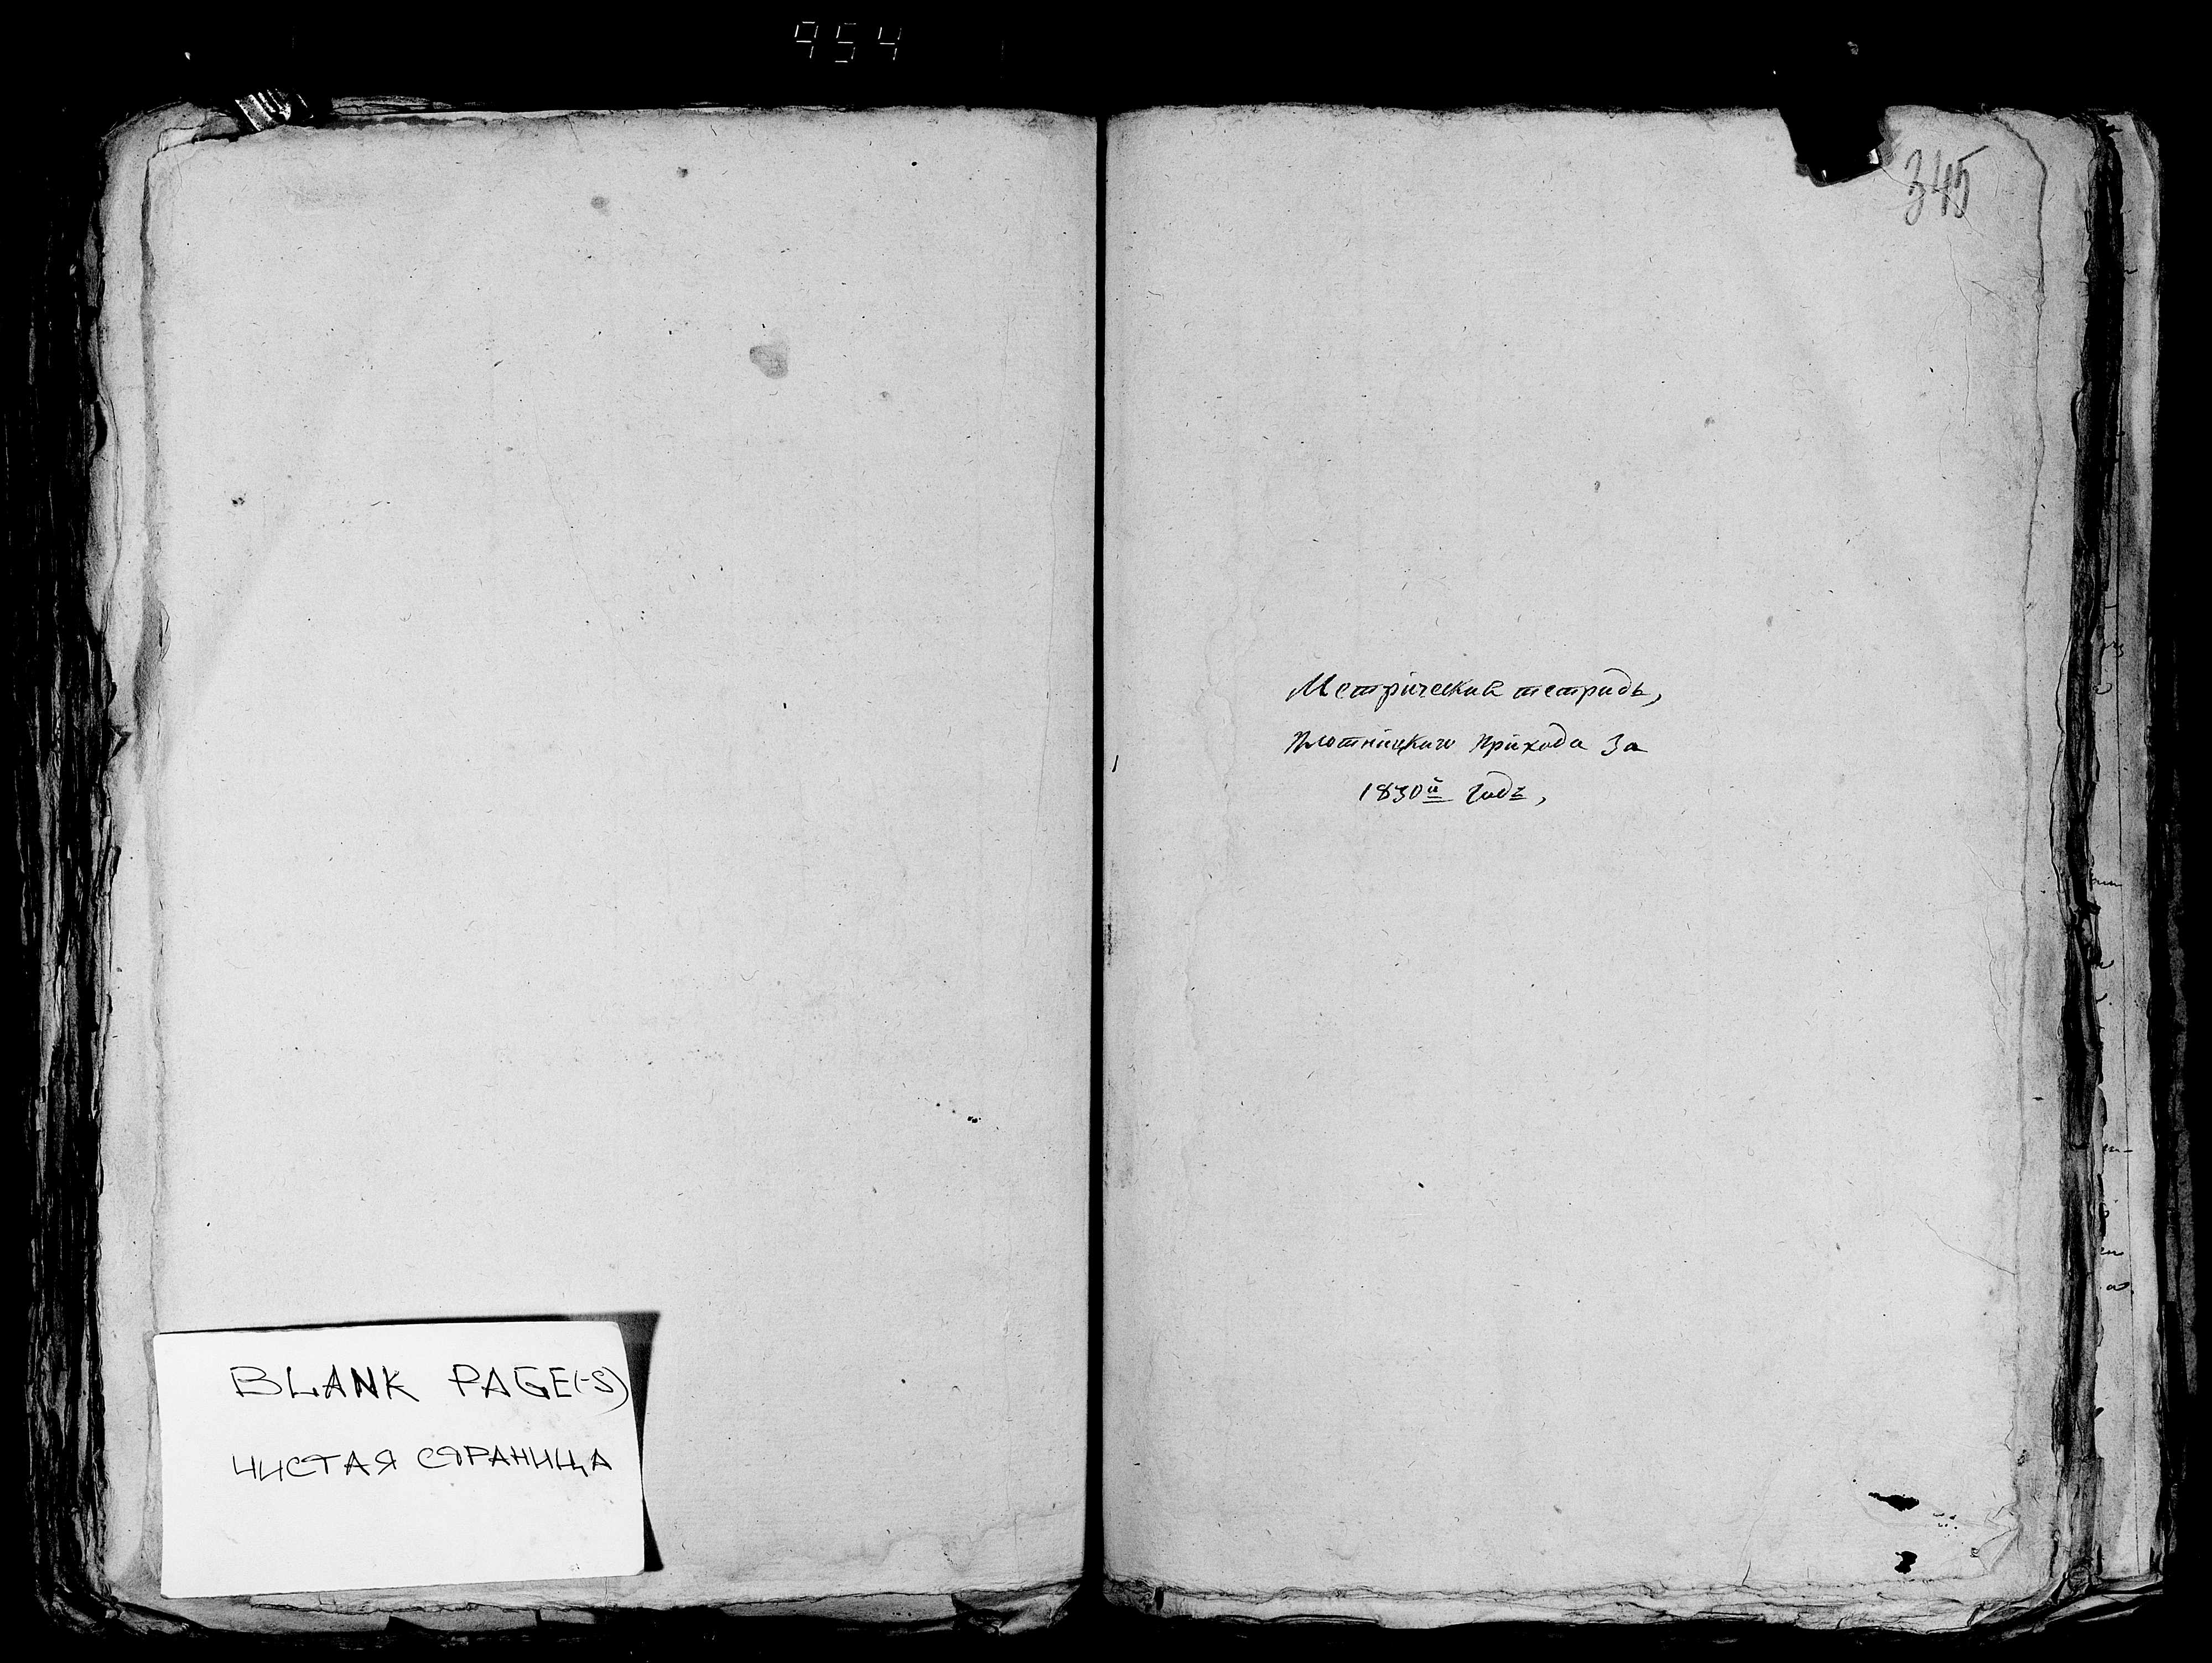 954
345
Метрическая тетрадь,
Плотницкаго прихода За
1830й Годъ,
BLANK PAGE(-S)
ЧИСТАЯ СТРАНИЦА